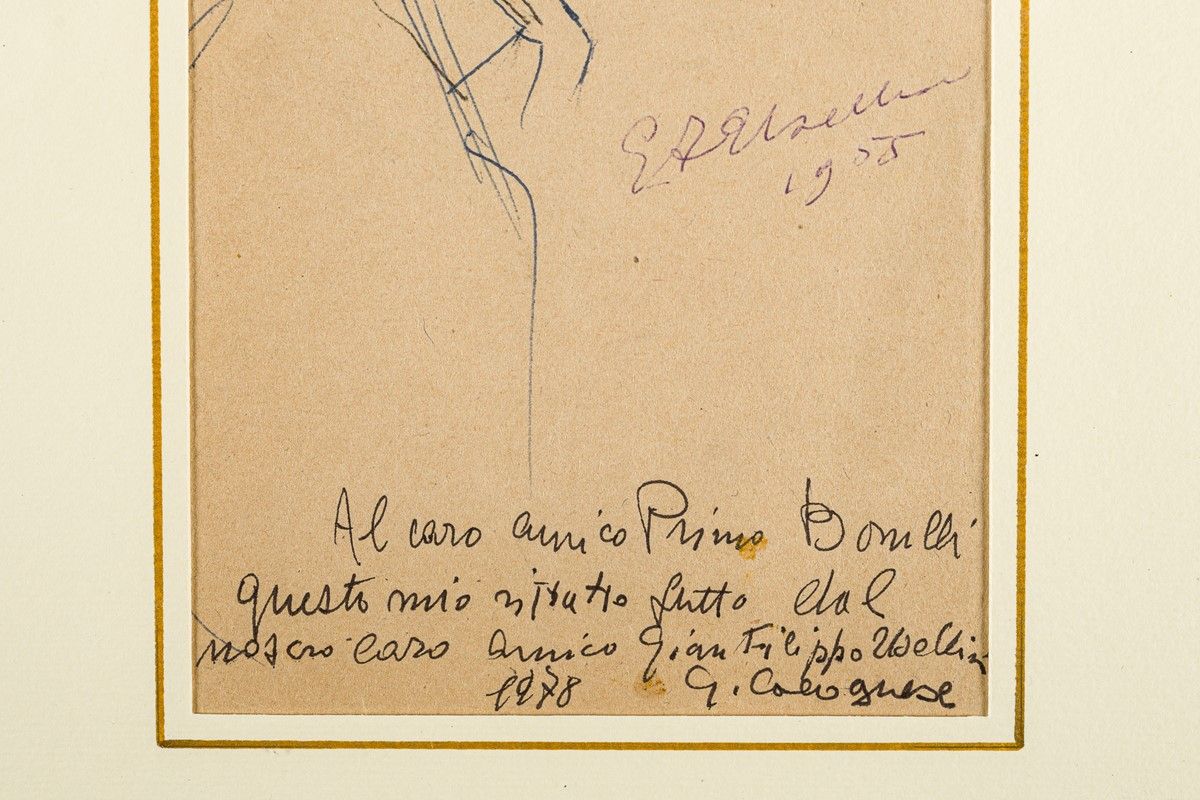 GF Usellini
1955
Al caro amico Primo Borelli
questo mio ritratto fatto dal
nostro caro amico Gian Filippo Usellini
1978 G.